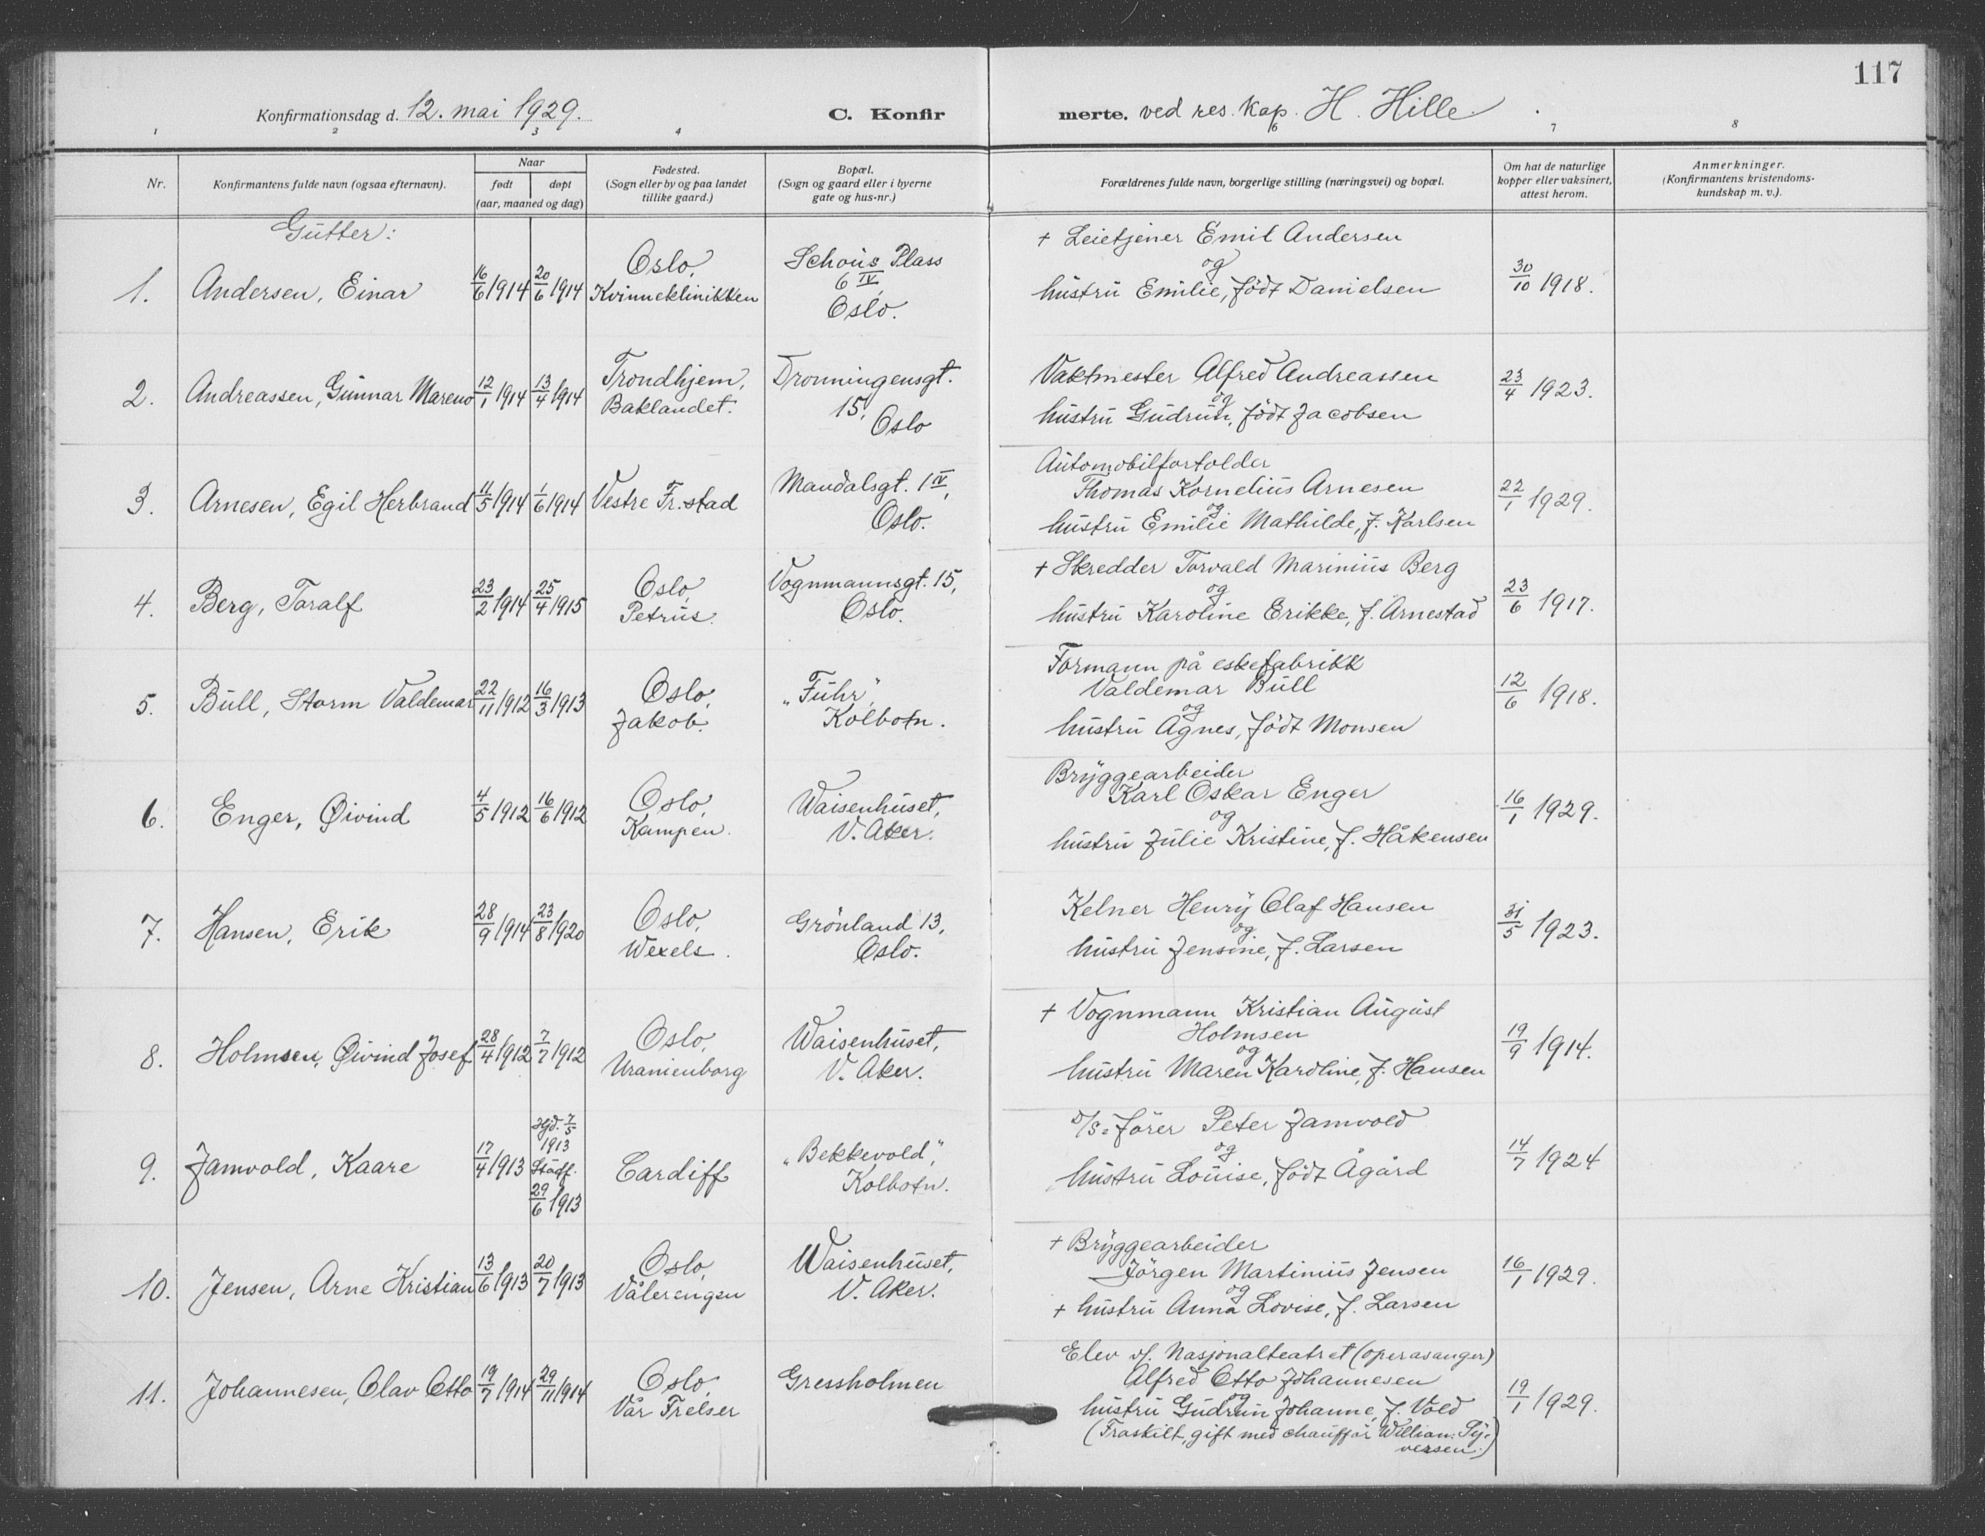 117
Konfirmationsdag d. 12. mai 1929. C. Konfirmerte. ved res. kap. H. Hille
1 2 3 4 6 7 8
Nr.
Konfirmantens fulde navn (ogsaa efternavn).
Naar
født døpt
(aar, maaned og dag)
Fødested.
(Sogn eller by og paa landet
tillike gaard.)
Bopæl.
(Sogn og gaard eller i byerne
gate og hus-nr.)
Forældrenes fulde navn, borgerlige stilling (næringsvei) og bopæl.
Om hat de naturlige
kopper eller vaksinert,
attest herom.
Anmerkninger.
(Konfirmantens kristendoms-
kundskap m. v.).
Gutter:
1. Andersen, Einar 16/6 1914 20/6 1914
Oslo,
Kvinneklinikken
Schous Plass
6 IV,
Oslo.
+ Leietjener Emil Andersen
og
hustru Emilie, født Danielsen
30/10 1918.
2. Andreassen, Gunnar Mareno 12/1 1914 13/4 1914
Trondhjem,
Baklandet.
Dronningensgt.
15,
Oslo
Vaktmester Alfred Andreassen
og
hustru Gudrun, født Jacobsen
23/4 1923.
3. Arnesen, Egil Herbrand 11/5 1914 1/6 1914
Vestre Fr.stad
Mandalsgt. 1 IV,
Oslo.
Automobilfortolder
Thomas Kornelius Arnesen
og
hustru Emilie Mathilde, f. Karlsen
22/1 1929.
4. Berg, Toralf 23/2 1914 25/4 1915
Oslo,
Petrus.
Vognmannsgt. 15,
Oslo.
+ Skredder Torvald Marinius Berg
og
hustru Karoline Erikke, f. Arnestad
23/6 1917.
5. Bull, Storm Valdemar 22/11 1912 16/3 1913
Oslo,
Jakob.
"Fuhr",
Kolbotn.
Formann på eskefabrikk
Valdemar Bull
og
hustru Agnes, født Monsen
12/6 1918.
6. Enger, Øivind 4/5 1912 16/6 1912
Oslo,
Kampen.
Waisenhuset,
V. Aker.
Bryggearbeider
Karl Oskar Enger
og
hustru Julie Kristine, f. Håkensen
16/1 1929.
7. Hansen, Erik 28/9 1914 23/8 1920
Oslo,
Wexels.
Grönland 13,
Oslo.
Kelner Henry Olaf Hansen
og
hustru Jensine, f. Larsen
31/5 1923.
8. Holmsen, Øivind Josef 28/4 1912 7/7 1912
Oslo,
Uranienborg
Waisenhuset,
V. Aker.
+ Vognmann Kristian August
Holmsen
og
hustru Maren Karoline, f. Hansen
19/9 1914.
9. Jamvold, Kaare 17/4 1913
hjd. 7/5
1913
Stadf.
29/6 1913
Cardiff
"Bekkevold",
Kolbotn.
D/S=förer Peter Jamvold
og
hustru Louise, født Ågård
14/7 1924
10. Jensen, Arne Kristian 13/6 1913 20/7 1913
Oslo,
Vålerengen
Waisenhuset,
V. Aker.
+ Bryggearbeider
Jörgen Martinius Jensen
og
+ hustru Anna Lovise, f. Larsen
16/1 1929.
11. Johannesen, Olav Otto 19/7 1914 29/11 1914
Oslo,
Vår Frelser
Gressholmen
Elev v/. Nasjonalteatret (operasanger)
Alfred Otto Johannesen
og
hustru Gudrun Johanne, f. Vold
(Fraskilt, gift med chauffør William Sy-
versen.)
19/1 1929.